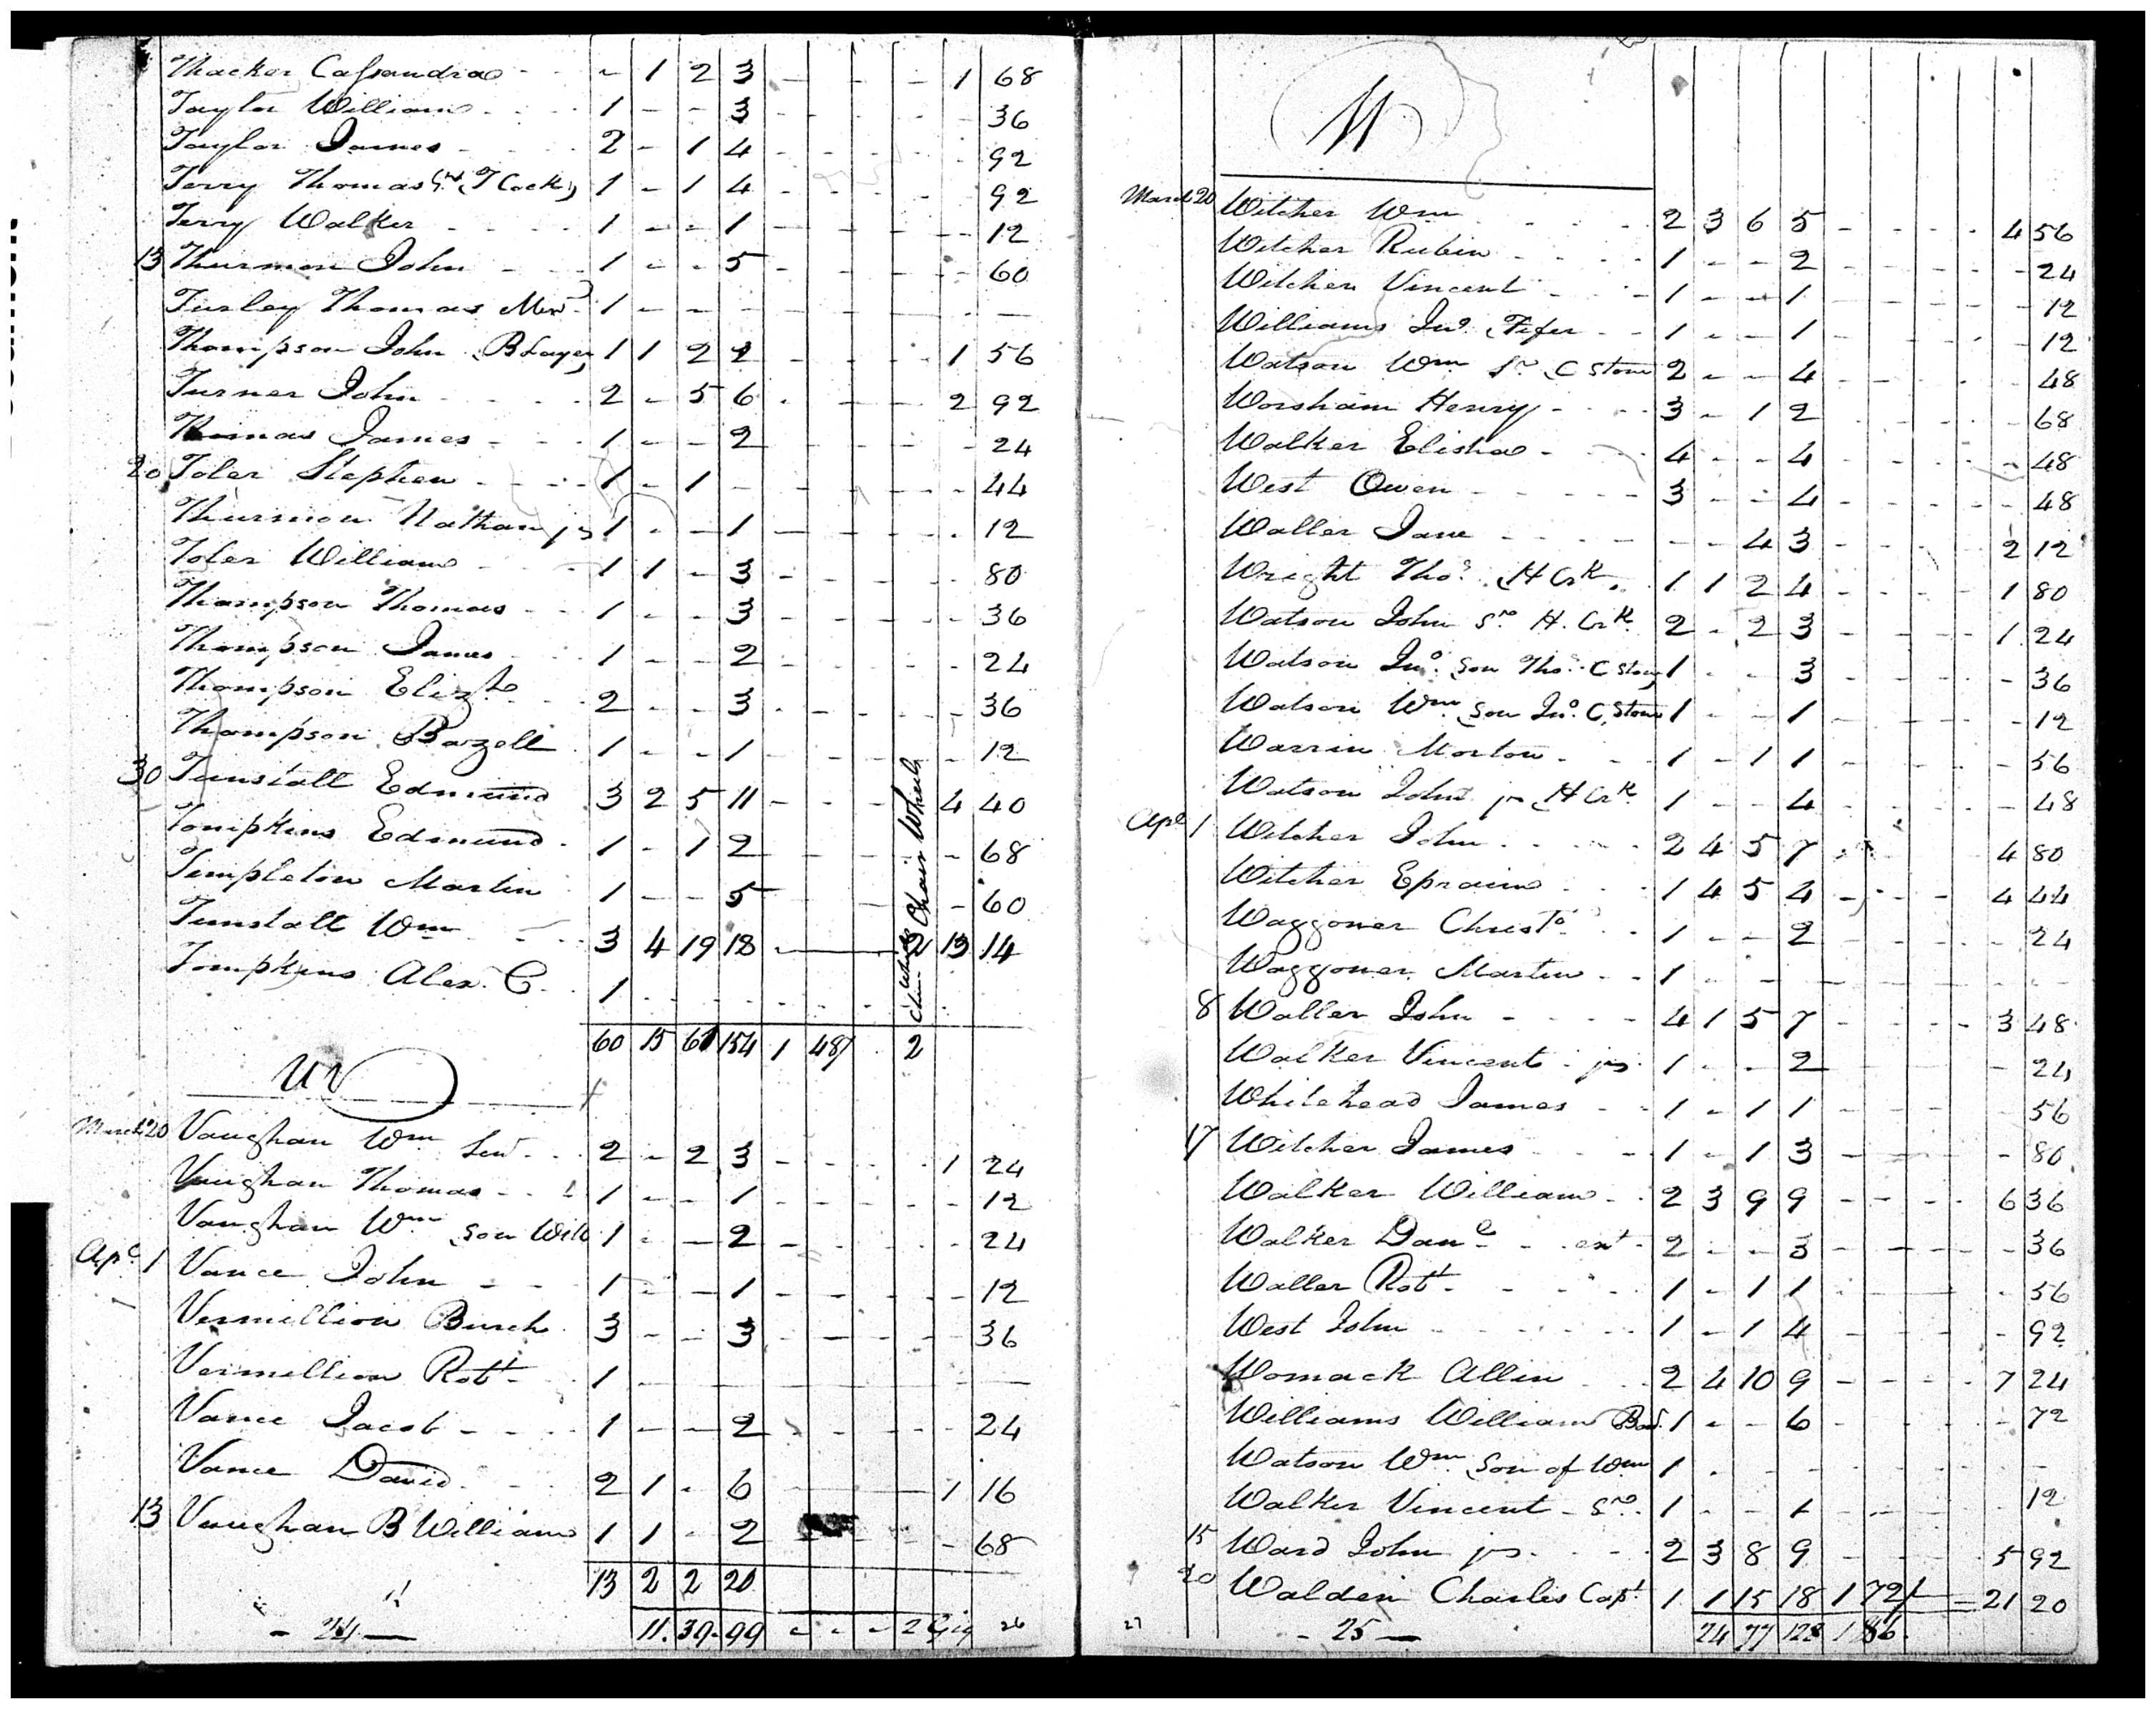 Thacker Cassandra - - 1 2 3 - - - 1 68
Taylor William - - 1 - - 3 - - - - 36
Taylor James - 2 - 1 4 - - - - 92
Terry Thomas (T Cock) 1 - 1 4 - - - - 92
Terry Walker - - - 1 - - 1 - - - - 12
13 Thurmon John - - 1 - - 5 - - - - 60
Turley Thomas 1 - - - - - - - -
Thompson John 1 1 2 2 - - - 1 56
Turner John - - - 2 - 5 6 - - - 2 92
Thomas James - - - 1 - - 2 - - - - 24
20 Toler Stephen - - - 1 - 1 - - - - - 44
Thurmon Nathan jr 1 - - 1 - - - - 12
Toler William - - 1 1 - 3 - - - - 80
Thompson Thomas - - 1 - - 3 - - - - 36
Thompson James - 1 - - 2 - - - - 24
Thompson Elizth 2 - - 3 - - - - 36
Thompson Bazell 1 - - 1 - - - - 12
30 Tunstall Edmund 3 2 5 11 - - - 4 40
Tompkins Edmund - 1 - 1 2 - - - - 68
Templeton Martin 1 - - 5 - - - 60
Tunstall Wm - - 3 4 19 18 - 2 13 14
Chair Wheels
Tompkins Alex. C. 1 - - - - - - -
60 15 61 154 1 48/ 2
March 20 Vaughan Wm Senr - - 2 - 2 3 - - - 1 24
Vaughan Thomas - - 1 - - 1 - - - - 12
Vaughan Wm son Will 1 - - 2 - - - - 24
Apl 1 Vance John - - 1 - - 1 - - - - 12
Vermillion Burch 3 - - 3 - - - - 36
Vermillion Robt - 1 - - - - - - -
Vance Jacob - - - 1 - - 2 - - - - 24
Vance David - - 2 1 - 6 - - - 1 16
13 Vaughan B William 1 1 - 2 - - - 68
13 2 2 20
- 24 - 11. 39. 99 - - - 2 Gig 26
W
March 20 Witcher Wm - - - 2 3 6 5 - - - - 4 56
Witcher Rubin - - - - 1 - - 2 - - - - - 24
Witcher Vincent - - - 1 - - 1 - - - - - 12
Williams Jno. Fifer - - 1 - - 1 - - - - - 12
Watson Wm Sr C Stone 2 - - 4 - - - - - 48
Worsham Henry - - - 3 - 1 2 - - - - 68
Walker Elisha - - - 4 - - 4 - - - - - 48
West Owen - - - - - 3 - - 4 - - - - - 48
Waller Jane - - - - - - - 4 3 - - - - 2 12
Wright Thos. H Crk. 1 1 2 4 - - - - 1 80
Watson John Sr H. Crk. 2 - 2 3 - - - - 1 24
Watson Jno. son Thos. C Stone 1 - - 3 - - - - - 36
Watson Wm son Jno. C. Stone 1 - - 1 - - - - - 12
Warrin Morton - - - 1 - 1 1 - - - - - 56
Watson John jr H Crk. 1 - - 4 - - - - - 48
Apl 1 Witcher John - - - - 2 4 5 7 - - - 4 80
Witcher Epraim - - - 1 4 5 4 - - - 4 44
Waggoner Christo. - - 1 - - 2 - - - - 24
Waggoner Martin - - 1 - - - - - - - - -
8 Waller John - - - - 4 1 5 7 - - - - 3 48
Walker Vincent - jr 1 - - 2 - - - - 24
Whitehead James - - 1 - 1 1 - - - - 56
17 Witcher James - - 1 - 1 3 - - - - 80
Walker William - - 2 3 9 9 - - - - 6 36
Walker Danl - - 2 - - 3 - - - - - 36
Waller Robt - - - - 1 - 1 1 - - - - 56
West John - - - - - 1 - 1 4 - - - - 92
Womack Allen - - 2 4 10 9 - - - - 7 24
Williams William 1 - - 6 - - - - 72
Watson Wm son of Wm 1 - - - - - - - -
Walker Vincent - Sr. 1 - - 1 - - - - 12
15 Ward John jr. - - - 2 3 8 9 - - - 5 92
20 Walden Charles Capt 1 1 15 18 1 72/ = 21 20
27 - 25 - 24 77 123 1 86